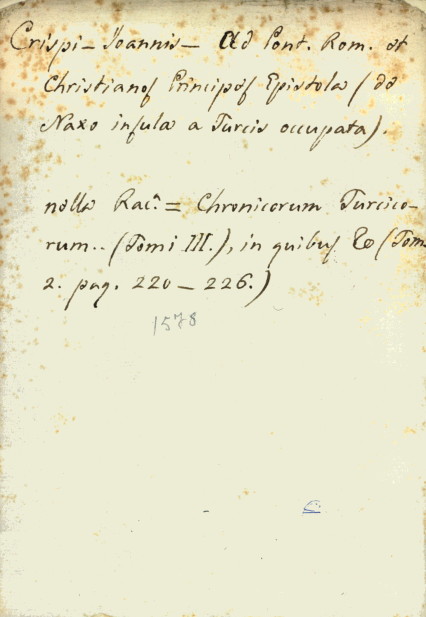 Crispi – Joannis – Ad Pont. Rom. et
Christianos Principes Epistola (de
Naxo insula a Turcis occupata).
nella Racc. = Chronicorum Turcico-
rum.. (Tomi III.), in quibus &c (Tom.
2. pag. 220 – 226.)
1578
C